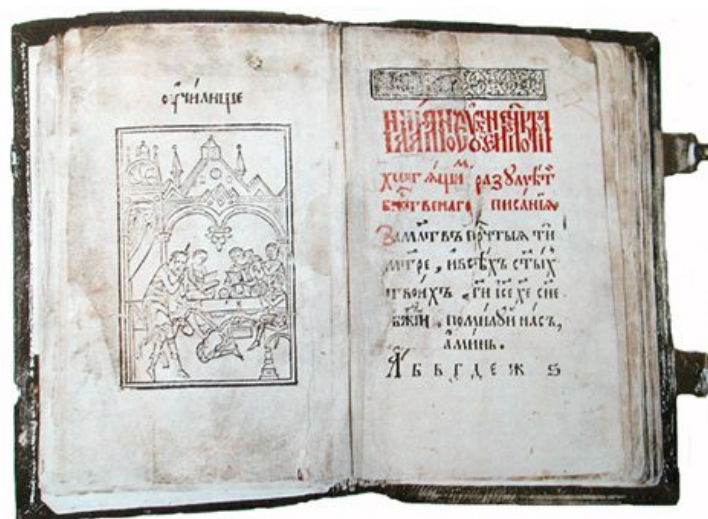 оучи́лище
хотѧ́щиⷨ разꙋмѣ́тⷤи
бжⷭ҇твенаго писа́нїѧ
За мл҃твъ прⷭ҇чтыѧ ти
мт҃ре , и всѣ́хъ ст҃ы́х
твои́хъ , гд҃и і҃се х҃е сн҃е
бж҃їи , поми́лꙋи на́съ ,
ами́нь .
А҆ б в г д е ж ѕ